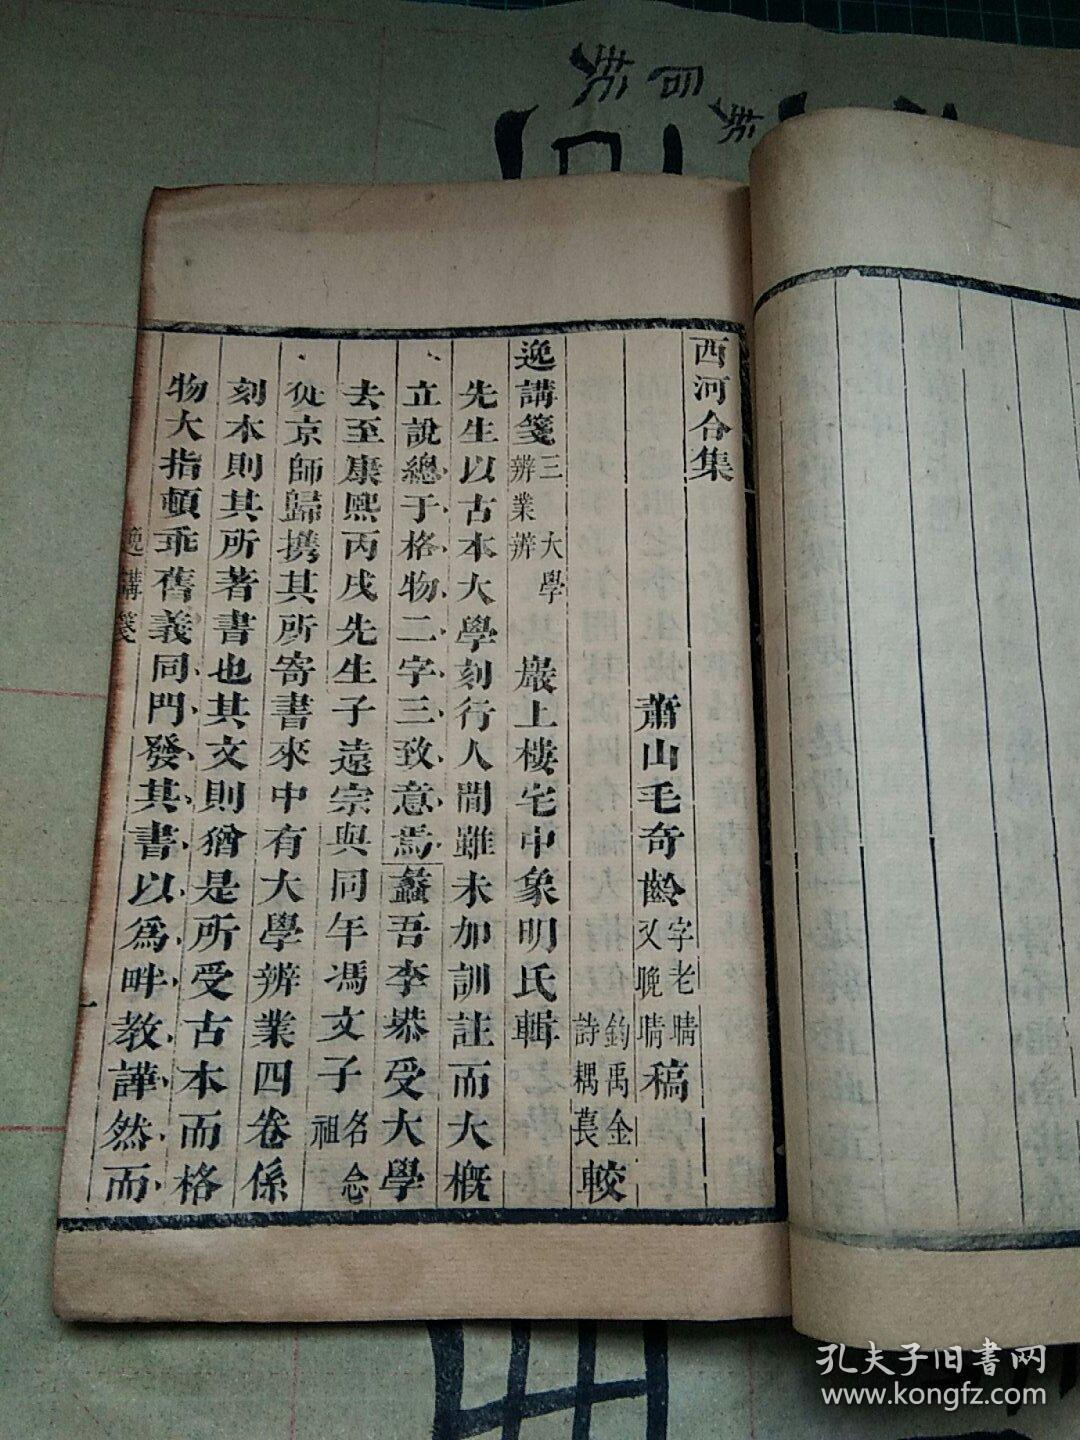 西河合集
蕭山毛奇齡字老晴又晚晴稿
鈞禹金詩耦萇較
逸講箋三大學辨業辨巖上樓宅中象明氏輯
先生以古本大學刻行人間雖未加訓註而大概
立說總于格物二字三致意焉蠡吾李恭受大學
去至康熙丙戌先生子遠宗與同年馮文子名念祖
從京師歸携其所寄書來中有大學辨業四卷係
刻本則其所著書也其文則猶是所受古本而格
物大指頓乖舊義同門發其書以爲畔教譁然而
逸講箋
一
孔夫子旧書网
www.kongfz.com